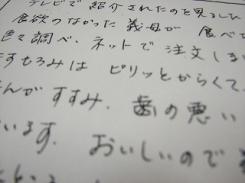 テレビで紹介されたのを見るし
食欲のなかった義母が 食べ
色々調べ、ネットで注文しま
すもろみは ピリッとからくて、
んがすすみ、歯の悪い
います。 おいしいので